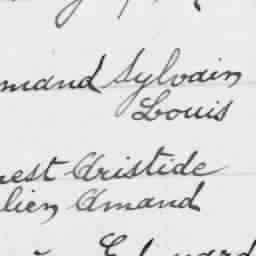 mand Sylvain
Louis
nest Aristide
lien Amand
Edouard